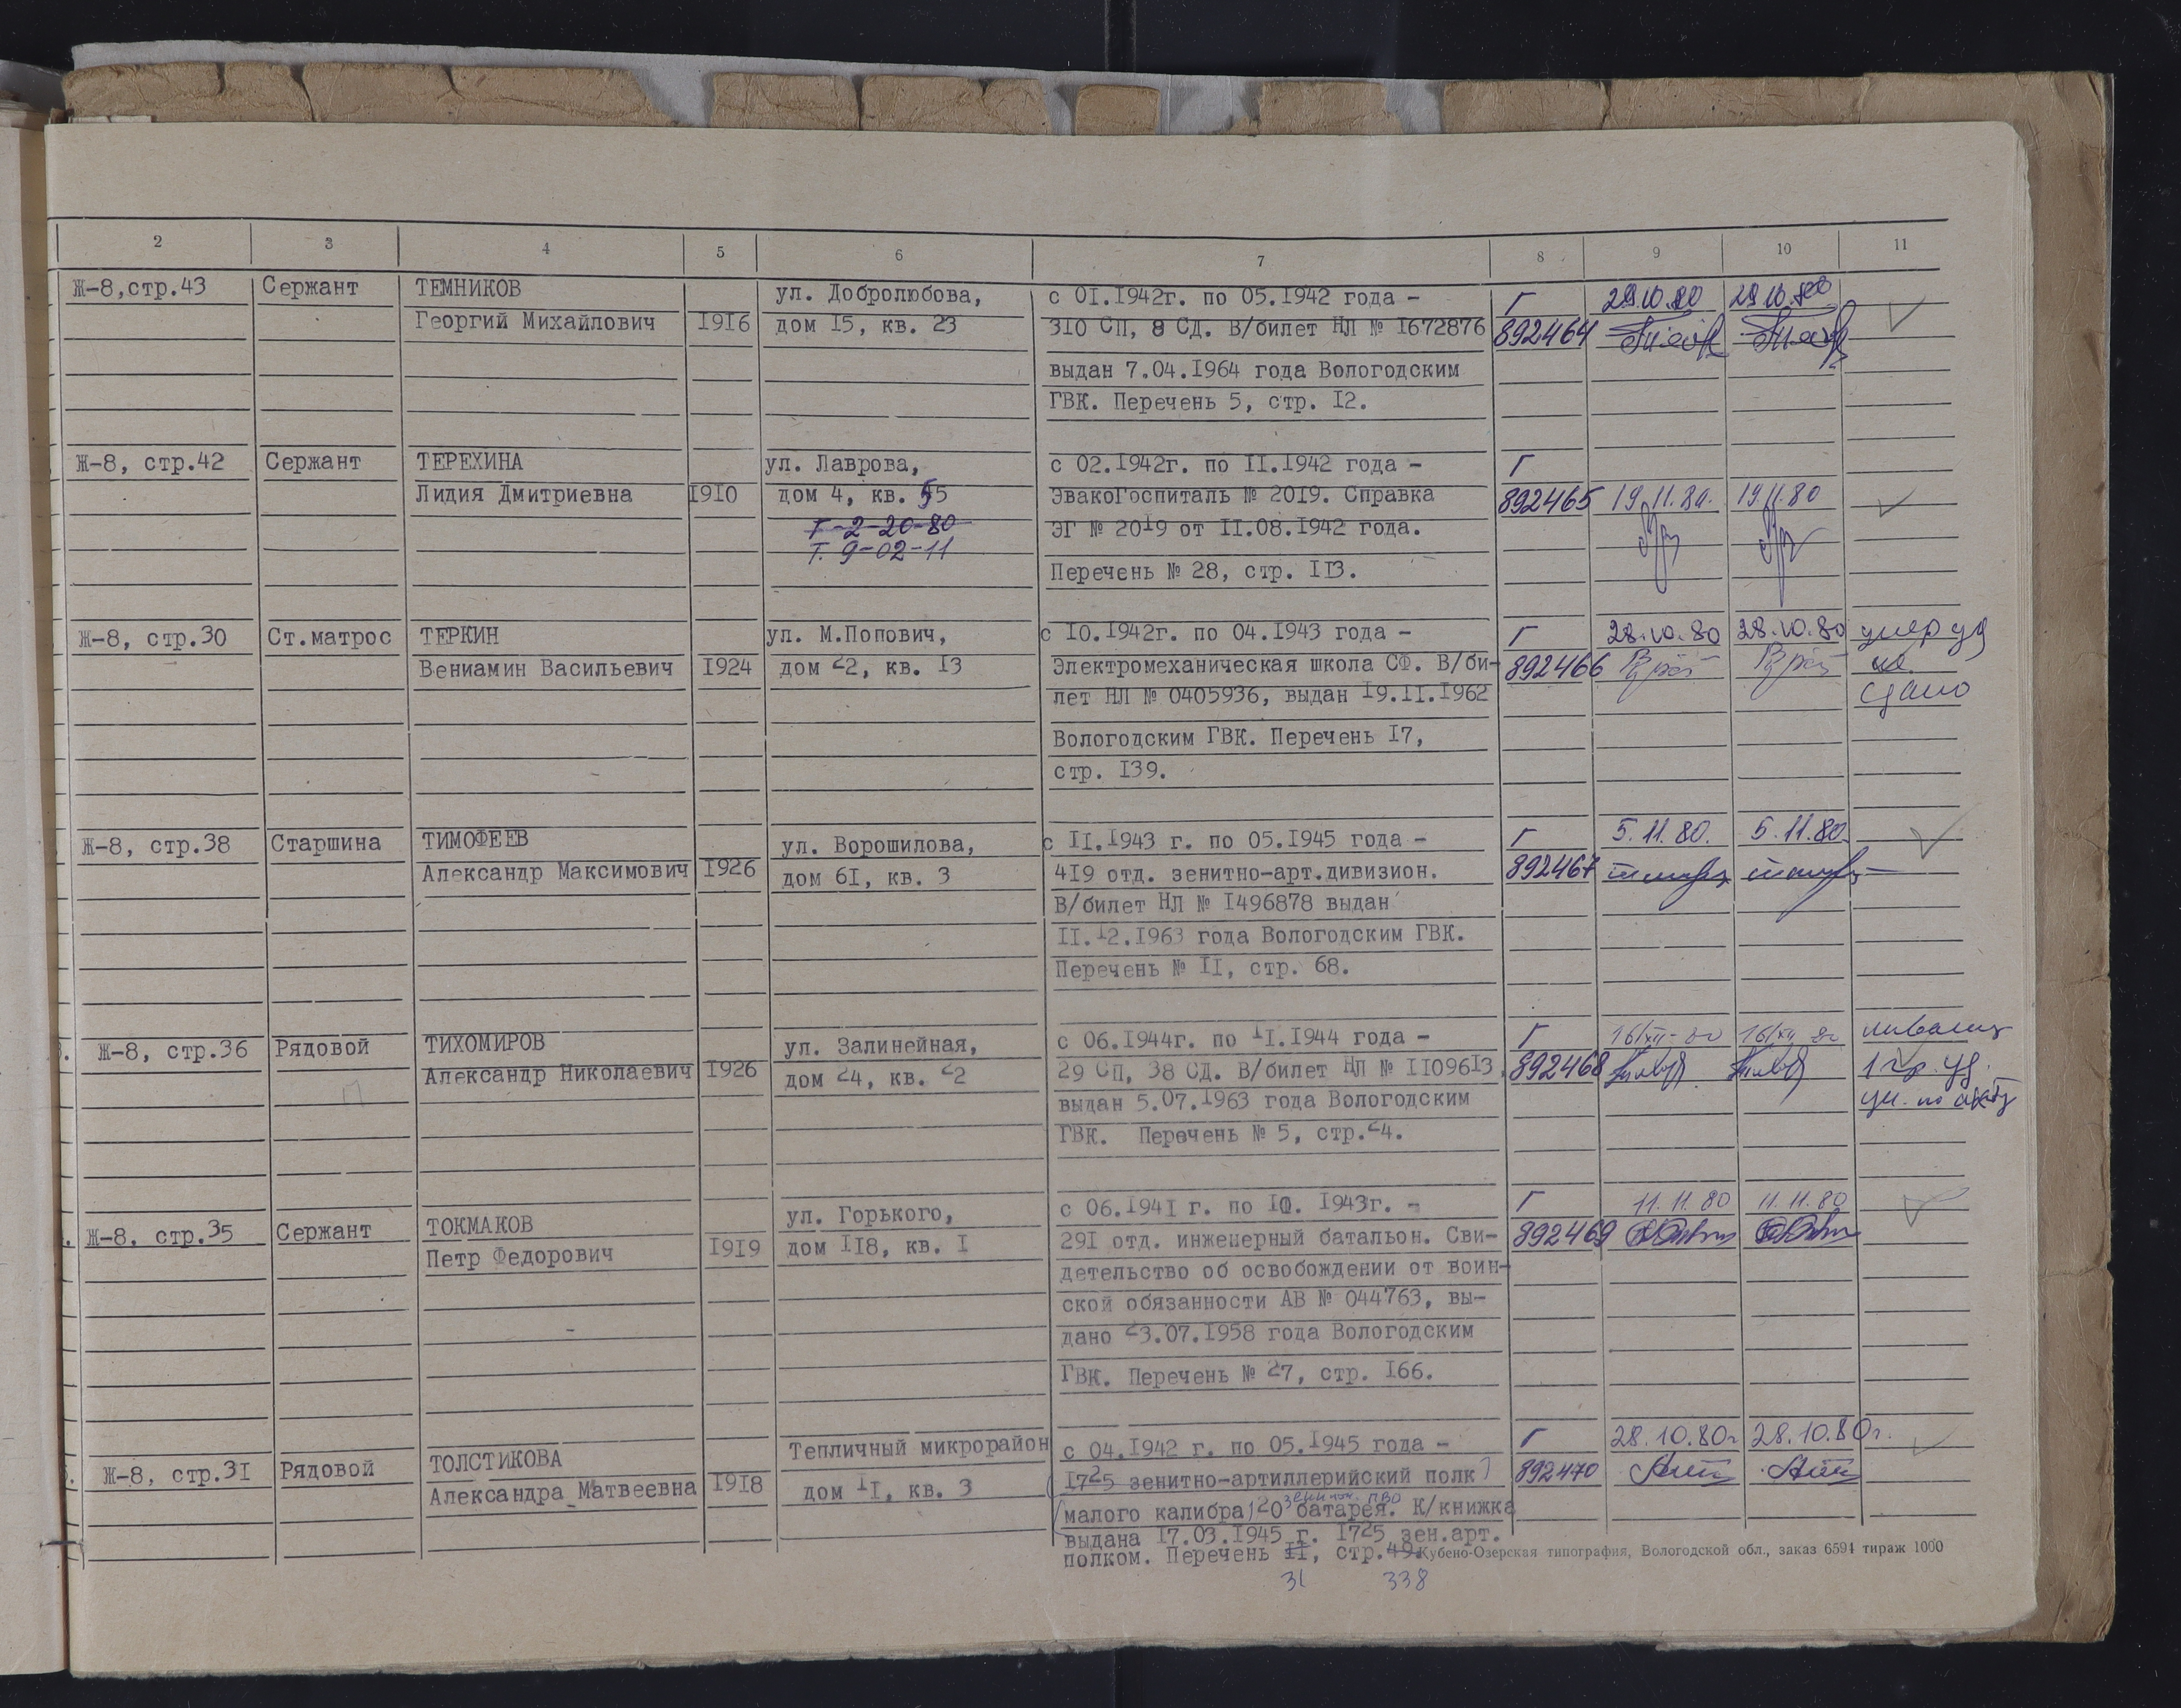 2 3 4 5 6 7 8 9 10 11
Ж-8,стр.43 Сержант ТЕМНИКОВ ул. Добролюбова, с 01.1942г. по 05.1942 года - Г 29.10.80 29.10.80
Георгий Михайлович 1916 дом 15, кв. 23 310 СП, 8 СД. В/билет НЛ № 1672876 892464
выдан 7.04.1964 года Вологодским
ГВК. Перечень 5, стр. 12.
Ж-8, стр.42 Сержант ТЕРЕХИНА ул. Лаврова, с 02.1942г. по 11.1942 года - Г
Лидия Дмитриевна 1910 дом 4, кв. 55 ЭвакоГоспиталь № 2019. Справка 892465 19.11.80. 19.11.80
Т-2-20-80 ЭГ № 2019 от 11.08.1942 года.
Т. 9-02-11
Перечень № 28, стр. 113.
Ж-8, стр.30 Ст.матрос ТЕРКИН ул. М.Попович, с 10.1942г. по 04.1943 года - Г 28.10.80 28.10.80 умер уд
Вениамин Васильевич 1924 дом 22, кв. 13 Электромеханическая школа СФ. В/би- 892466 не
лет НЛ № 0405936, выдан 19.11.1962 сдано
Вологодским ГВК. Перечень 17,
стр. 139.
Ж-8, стр.38 Старшина ТИМОФЕЕВ ул. Ворошилова, с 11.1943 г. по 05.1945 года - Г 5.11.80. 5.11.80
Александр Максимович 1926 дом 61, кв. 3 419 отд. зенитно-арт.дивизион. 892467
В/билет НЛ № 1496878 выдан
11.12.1963 года Вологодским ГВК.
Перечень № 11, стр. 68.
Ж-8, стр.36 Рядовой ТИХОМИРОВ ул. Залинейная, с 06.1944г. по 11.1944 года - Г 16/XII-80 16/XII 80 инвалид
Александр Николаевич 1926 дом 24, кв. 22 29 СП, 38 СД. В/билет НЛ № 1109613, 892468 1 гр. уд.
выдан 5.07.1963 года Вологодским по акту
ГВК. Перечень № 5, стр.24.
Ж-8, стр.35 Сержант ТОКМАКОВ ул. Горького, с 06.1941 г. по 10. 1943г. - Г 11.11.80 11.11.80
Петр Федорович 1919 дом 118, кв. 1 291 отд. инженерный батальон. Сви- 892469
детельство об освобождении от воин-
ской обязанности АВ № 044763, вы-
дано 23.07.1958 года Вологодским
ГВК. Перечень № 27, стр. 166.
Ж-8, стр.31 Рядовой ТОЛСТИКОВА Тепличный микрорайон с 04.1942 г. по 05.1945 года - Г 28.10.80г 28.10.80г.
Александра Матвеевна 1918 дом 11, кв. 3 1725 зенитно-артиллерийский полк 892470
зенитн. ПВО
малого калибра) 20 батарея. К/книжка
выдана 17.03.1945 г. 1725 зен.арт.
полком. Перечень 11, стр.49. Кубено-Озерская типография, Вологодской обл., заказ 6594 тираж 1000
31 338